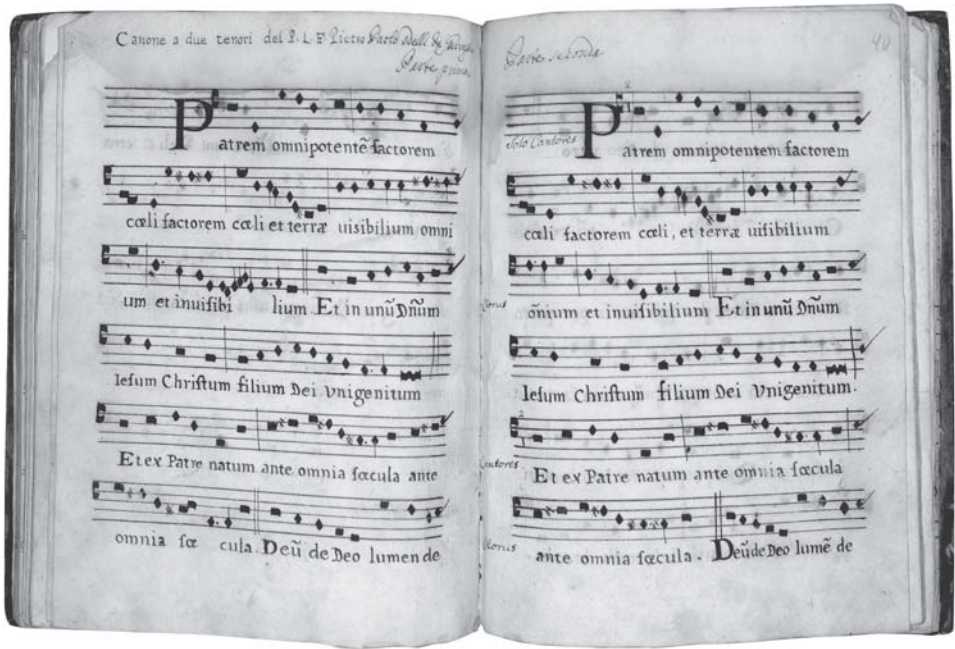 Canone a due tenori del P. L. F. Pietro Paolo
Parte prima
Patrem omnipotentẽ factorem
cœli factorem cœli et terræ uisibilium omni
um et inuisibi lium Et in unũ Dñum
Iesum Christum filium Dei Vnigenitum
Et ex Patre natum ante omnia sœcula ante
omnia sœ cula. Deũ de Deo lumen de
Parte seconda
40
2
Solo Cantores
Patrem omnipotentem factorem
cœli factorem cœli, et terræ uisibilium
õnium et inuisibilium Et in unũ Dñum
Iesum Christum filium Dei Vnigenitum.
2
Cantores
Et ex Patre natum ante omnia sœcula
ante omnia sœcula. Deũ de Deo lumẽ de